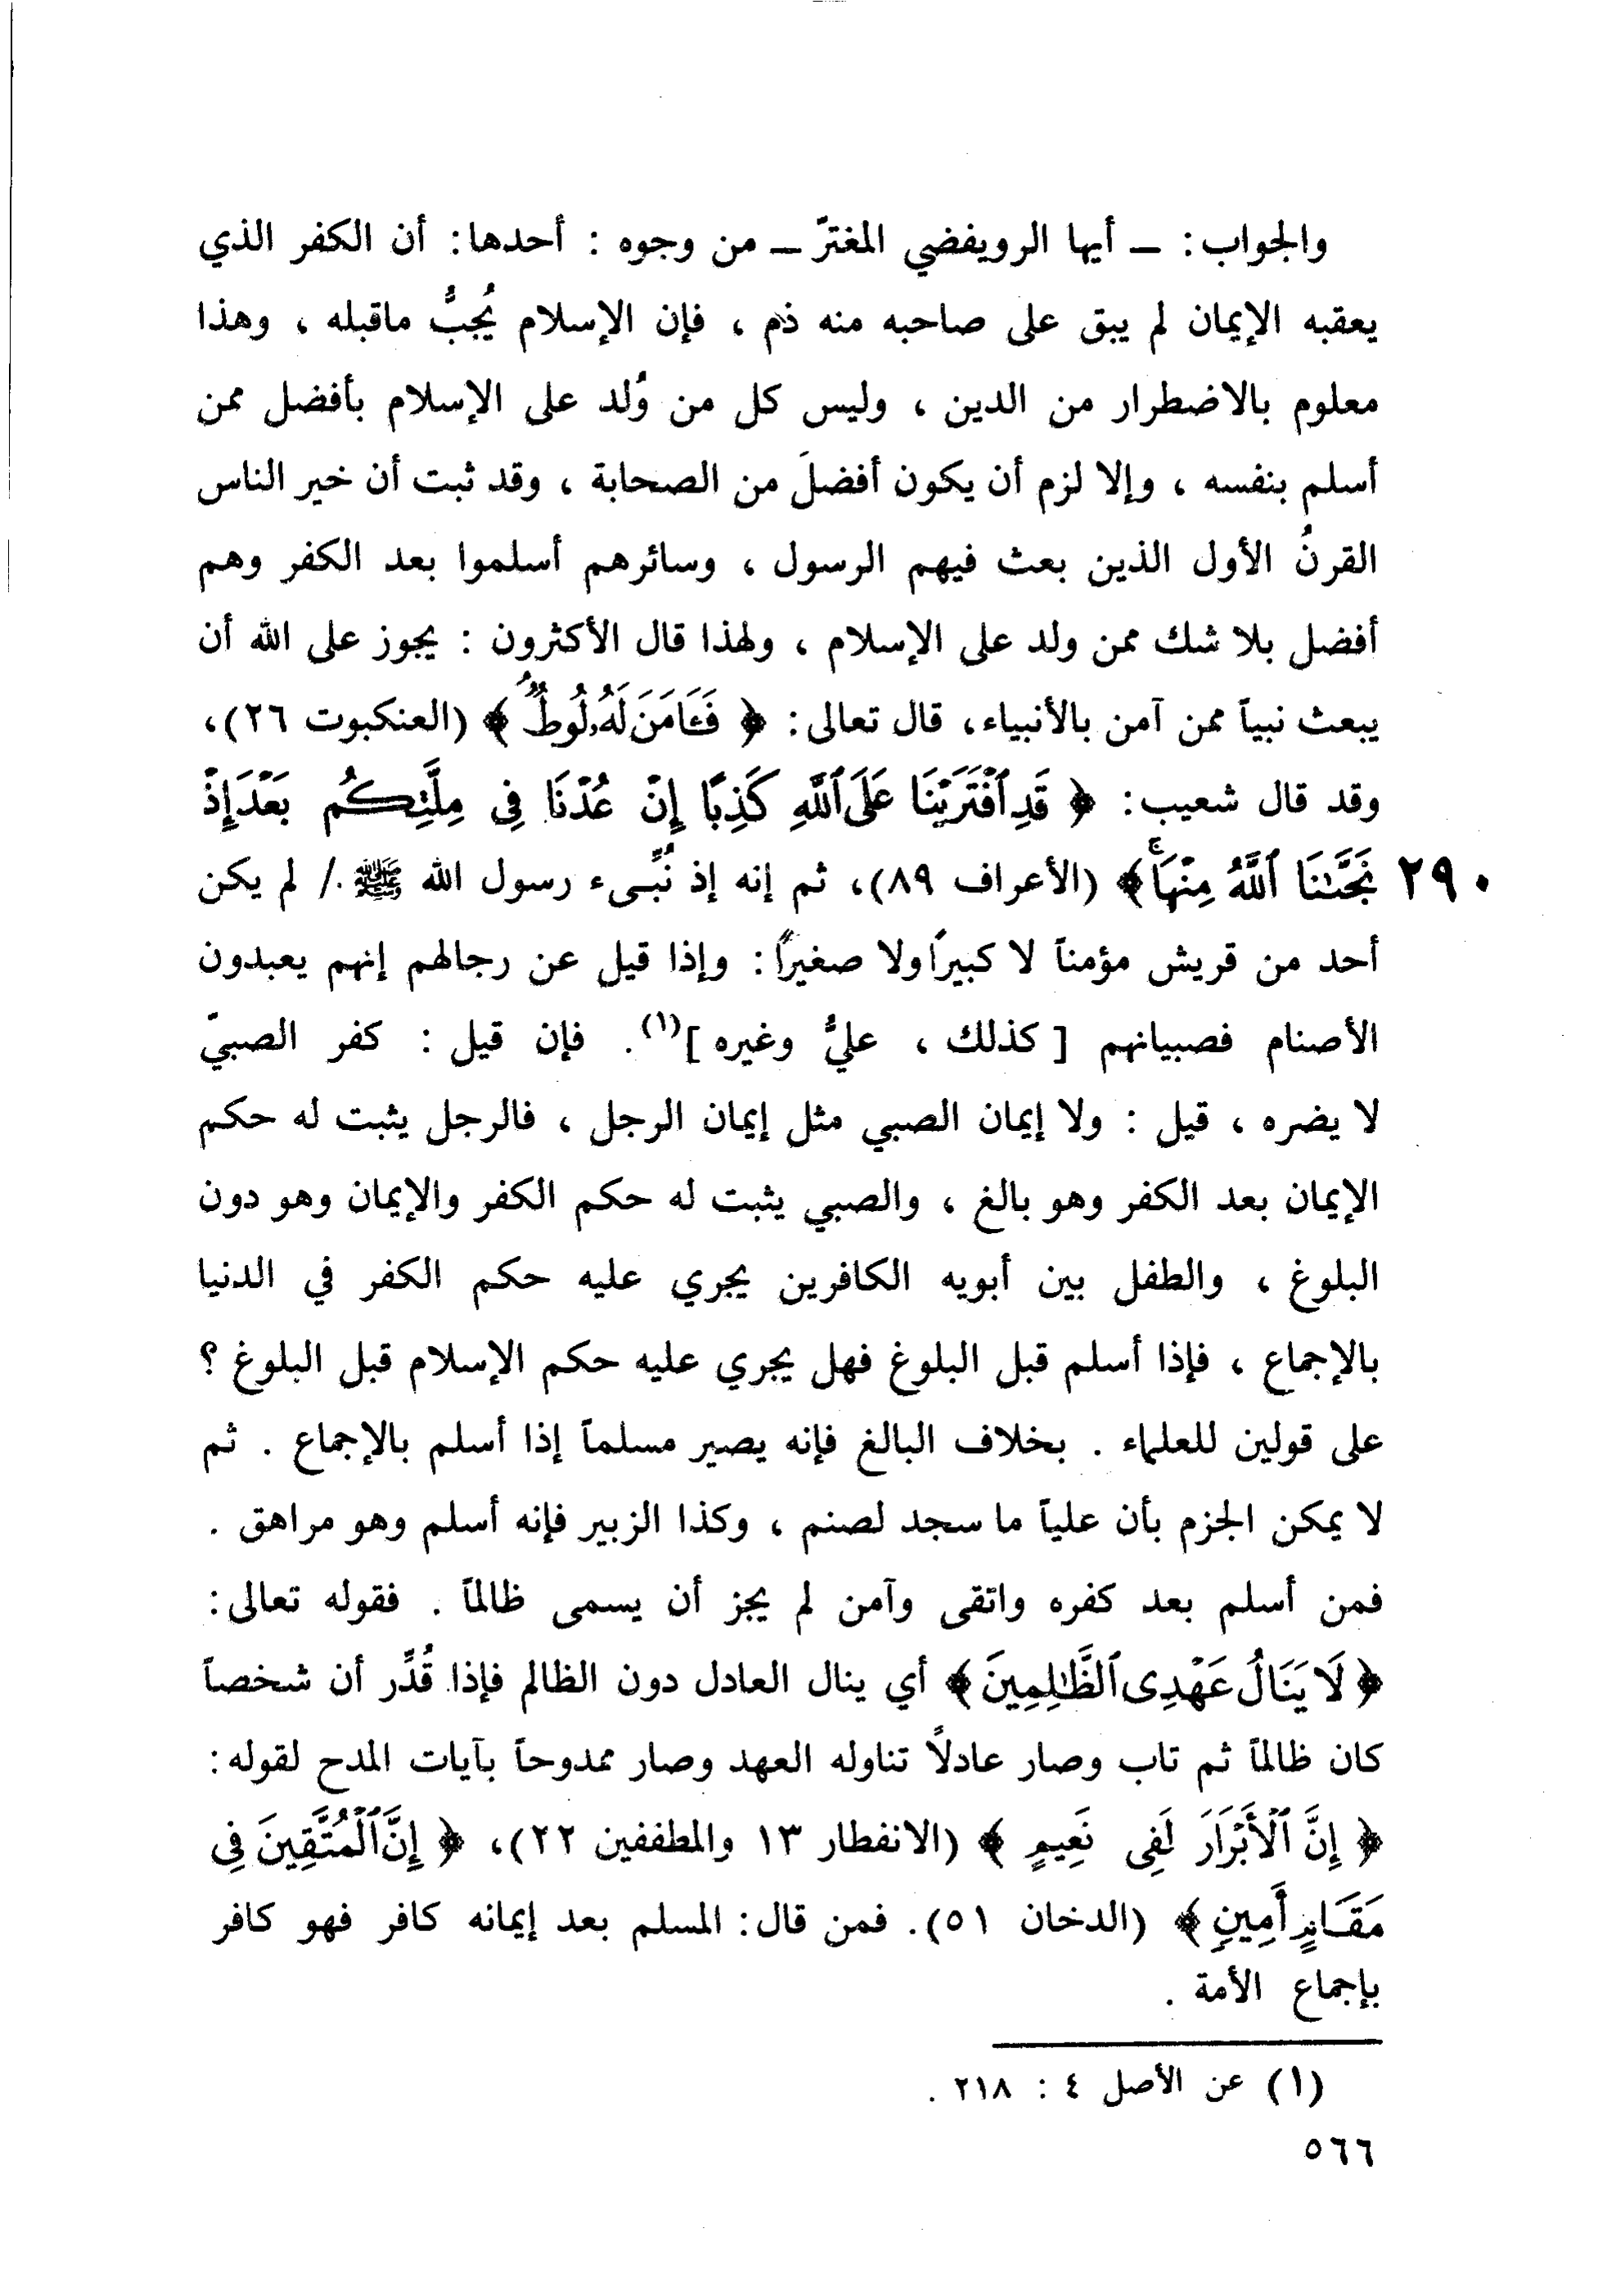 والجواب : ــ أيها الرويفضي المغترّ ــ من وجوه : أحدها : أن الكفر الذي
يعقبه الإيمان لم يبق على صاحبه منه ذم ، فإن الإسلام يُجبُّ ماقبله ، وهذا
معلوم بالاضطرار من الدين ، وليس كل من وُلد على الإسلام بأفضل ممن
أسلم بنفسه ، وإلا لزم أن يكون أفضلَ من الصحابة ، وقد ثبت أن خير الناس
القرنُ الأول الذين بعث فيهم الرسول ، وسائرهم أسلموا بعد الكفر وهم
أفضل بلا شك ممن ولد على الإسلام ، ولهذا قال الأكثرون : يجوز على الله أن
يبعث نبياً ممن آمن بالأنبياء، قال تعالى : ﴿ فَـَٔامَنَ لَهُۥ لُوطٌۘ ﴾ (العنكبوت ٢٦)،
وقد قال شعيب : ﴿ قَدِ ٱفْتَرَيْنَا عَلَى ٱللَّهِ كَذِبًا إِنْ عُدْنَا فِى مِلَّتِكُم بَعْدَ إِذْ
٢٩٠ نَجَّىٰنَا ٱللَّهُ مِنْهَاۚ ﴾ (الأعراف ٨٩)، ثم إنه إذ نُبِّىء رسول الله ﷺ ./ لم يكن
أحد من قريش مؤمناً لا كبيراً ولا صغيراً : وإذا قيل عن رجالهم إنهم يعبدون
الأصنام فصبيانهم [ كذلك ، عليٌّ وغيره ](١). فإن قيل : كفر الصبيّ
لا يضره ، قيل : ولا إيمان الصبي مثل إيمان الرجل ، فالرجل يثبت له حكم
الإيمان بعد الكفر وهو بالغ ، والصبي يثبت له حكم الكفر والإيمان وهو دون
البلوغ ، والطفل بين أبويه الكافرين يجري عليه حكم الكفر في الدنيا
بالإجماع ، فإذا أسلم قبل البلوغ فهل يجري عليه حكم الإسلام قبل البلوغ ؟
على قولين للعلماء . بخلاف البالغ فإنه يصير مسلماً إذا أسلم بالإجماع . ثم
لا يمكن الجزم بأن علياً ما سجد لصنم ، وكذا الزبير فإنه أسلم وهو مراهق .
فمن أسلم بعد كفره واتقى وآمن لم يجز أن يسمى ظالماً . فقوله تعالى :
﴿ لَا يَنَالُ عَهْدِى ٱلظَّـٰلِمِينَ ﴾ أي ينال العادل دون الظالم فإذا قُدِّر أن شخصاً
كان ظالماً ثم تاب وصار عادلاً تناوله العهد وصار ممدوحاً بآيات المدح لقوله :
﴿ إِنَّ ٱلْأَبْرَارَ لَفِى نَعِيمٍ ﴾ (الانفطار ١٣ والمطففين ٢٢)، ﴿ إِنَّ ٱلْمُتَّقِينَ فِى
مَقَامٍ أَمِينٍ ﴾ (الدخان ٥١). فمن قال : المسلم بعد إيمانه كافر فهو كافر
بإجماع الأمة .
(١) عن الأصل ٤ : ٢١٨ .
٥٦٦